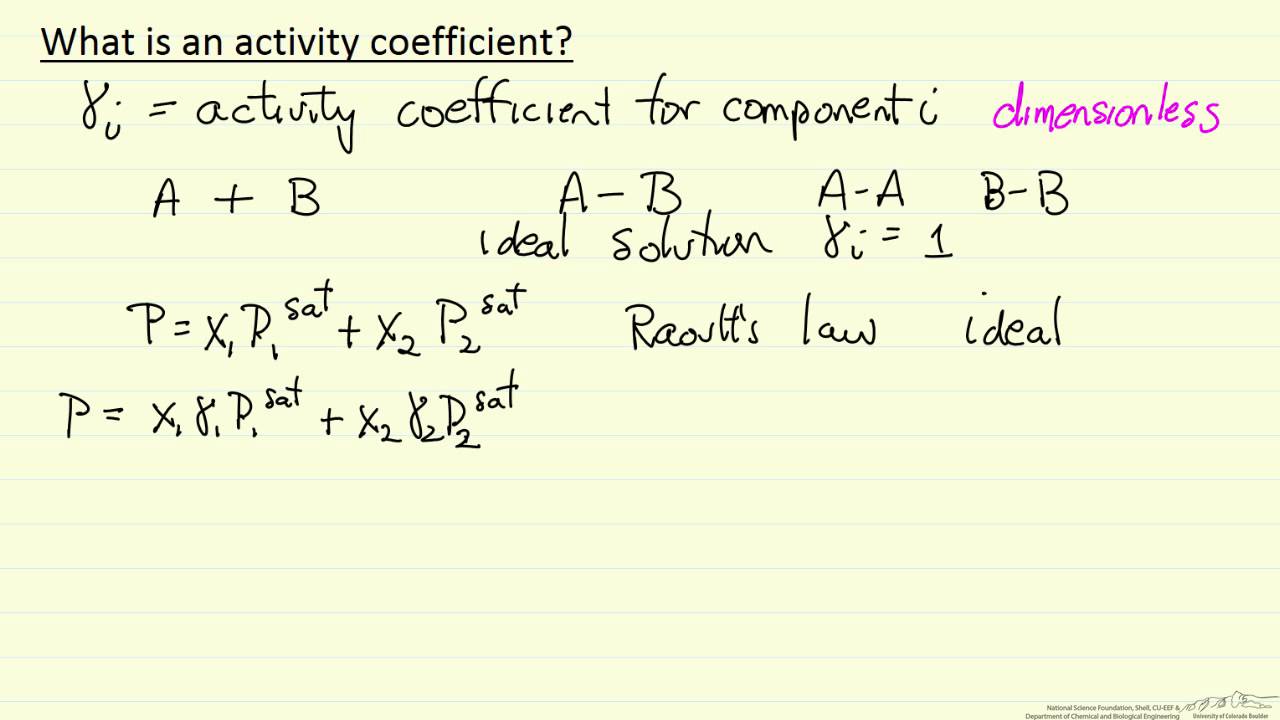 What is an activity coefficient?
γᵢ = activity coefficient for component i dimensionless
A + B A - B A-A B-B
ideal solution γᵢ = 1
P = x₁ P₁^sat + x₂ P₂^sat Raoult's law ideal
P = x₁ γ₁ P₁^sat + x₂ γ₂ P₂^sat
National Science Foundation, Shell, CU-EEF &
Department of Chemical and Biological Engineering University of Colorado Boulder